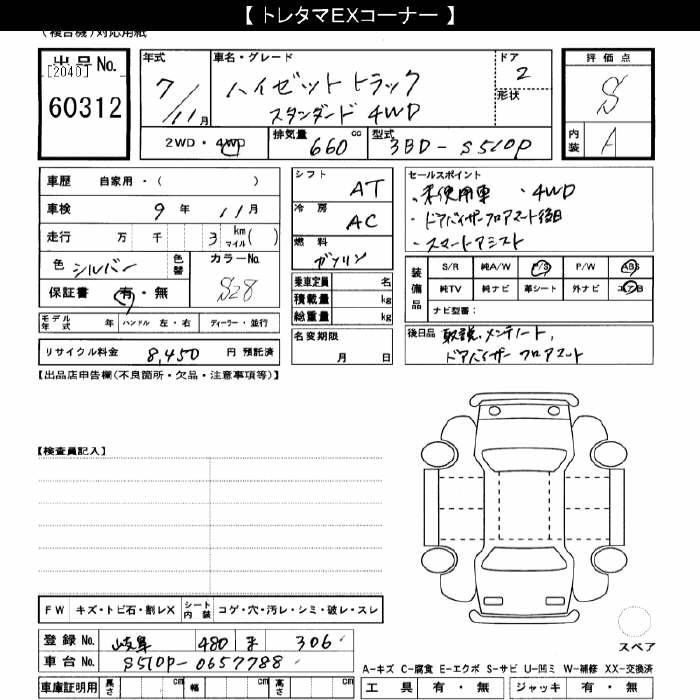 【 トレタマEXコーナー 】
(複合機)対応用紙
出品No.
[2040]
60312
年式 7/11月
車名・グレード ハイゼットトラック
スタンダード 4WD
ドア 2
形状
2WD・4WD
排気量 660 cc
型式 3BD-S510P
評価点 S
内装 A
車歴 自家用・( )
車検 9年 11月
走行 万 千 3 km マイル( )
色 シルバー
色替
カラーNo. S28
保証書 有・無
モデル年式 年 ハンドル 左・右 ディーラー・並行
リサイクル料金 8,450 円 預託済
シフト AT
冷房 AC
燃料 ガソリン
乗車定員 名
積載量 kg
総重量 kg
名変期限
月 日
セールスポイント
・未使用車 ・4WD
・ドアバイザーフロアマット後日
・スマートアシスト
装備品
S/R 純A/W P/S P/W ABS
純TV 純ナビ 革シート 外ナビ エアB
ナビ型番:
後日品 取説、メンテノート、
ドアバイザー フロアマット
【出品店申告欄(不良箇所・欠品・注意事項等)】
【検査員記入】
FW キズ・トビ石・割レX シート内装 コゲ・穴・汚レ・シミ・破レ・スレ
登録No. 岐阜 480 き 306
車台No. S510P-0657788
車庫証明用 長さ cm 幅 cm 高さ cm
スペア
A-キズ C-腐食 E-エクボ S-サビ U-凹ミ W-補修 XX-交換済
工具 有・無 ジャッキ 有・無